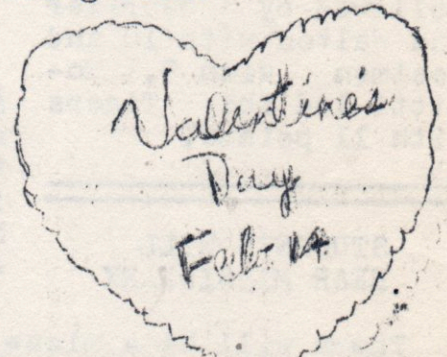 Valentine's
Day
Feb 14